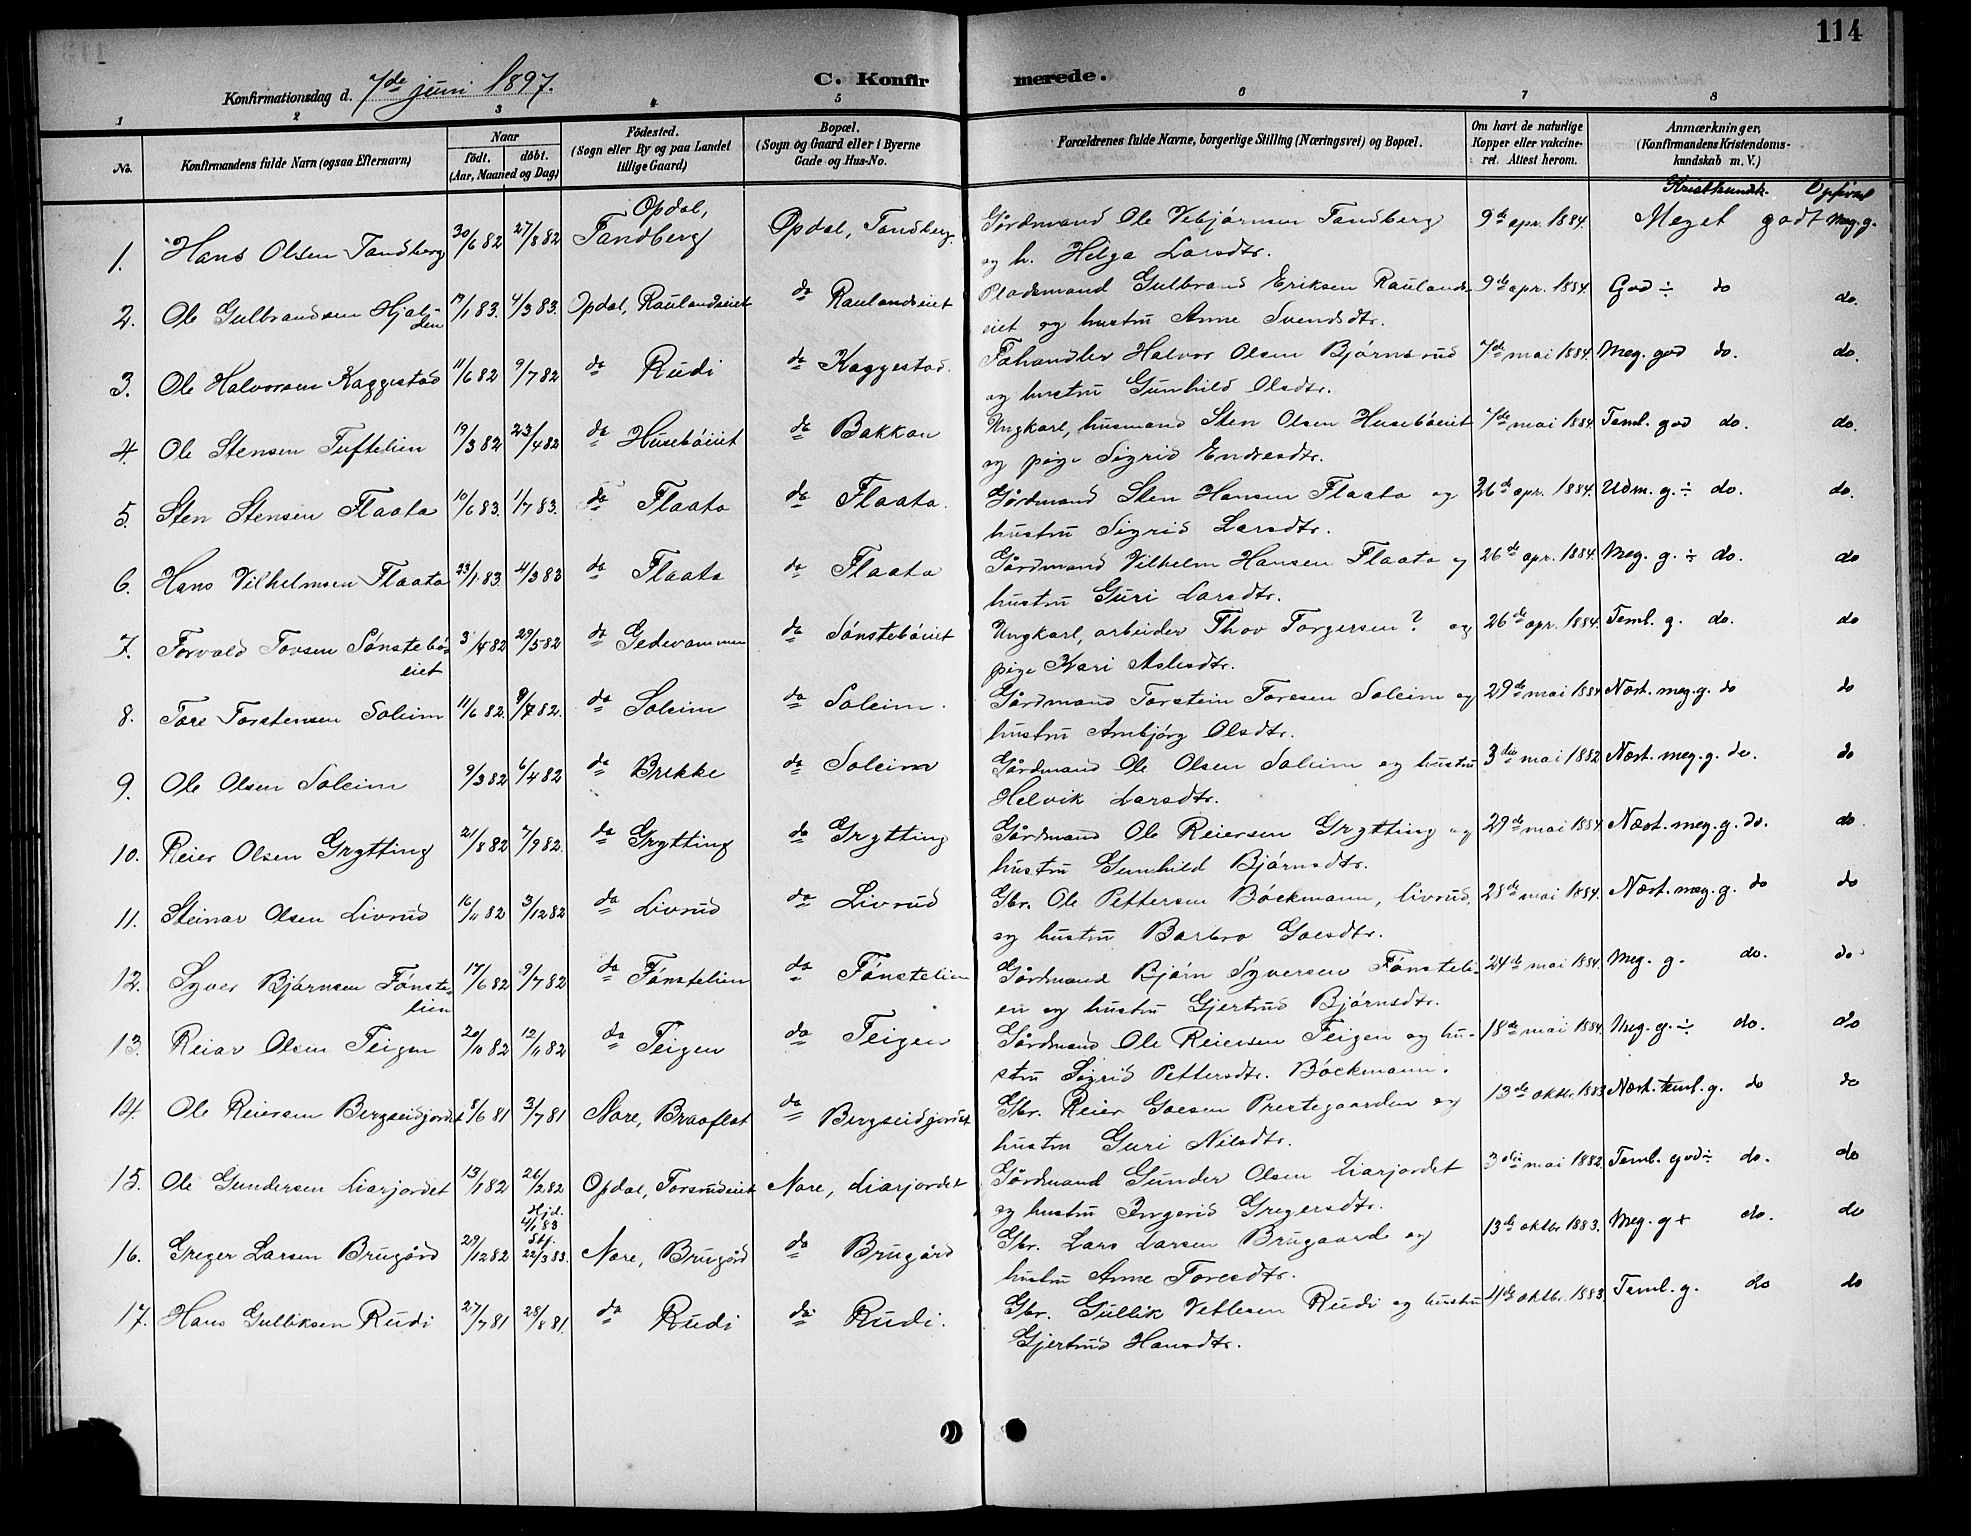 114
C. Konfirmerede.
Konfirmationsdag d. 7de juni 1897.
1 2 3 4 5 6 7 8
No. Konfirmandens fulde Navn (ogsaa Efternavn) Naar födt. döbt. (Aar, Maaned og Dag) Födested. (Sogn eller By og paa Landet tillige Gaard) Bopæl. (Sogn og Gaard eller i Byerne Gade og Hus-No. Forældrenes fulde Navne, borgerlige Stilling (Næringsvei) og Bopæl. Om havt de naturlige Kopper eller vakcineret. Attest herom. Anmærkninger. (Konfirmandens Kristendomskundskab m. V.)
Kristkundsk. Opførsel
1. Hans Olsen Tandberg 30/6 82 27/8 82 Opdal, Tandberg Opdal, Tandberg Gårdmand Ole Vebjørnsen Tandberg 9de apr. 1884. Meget godt Meg. g.
og h. Helga Larsdtr.
2. Ole Gulbrandsen Hjalden 19/1 83. 4/3 83. Opdal, Raulandseiet do Raulandseiet Pladsmand Gulbrand Eriksen Raulands- 9de apr. 1884 God ÷ do do.
eiet og hustru Anne Svendsdtr.
3. Ole Halvorsen Kaggestad 11/6 82 9/7 82 do Rudi do Kaggestad. Fæhandler Halvor Olsen Bjørnsrud 7de mai 1884. Meg. god do. do.
og hustru Gunhild Olsdtr.
4. Ole Stensen Tuftelien 19/3 82 23/4 82 do Husebøeiet do Bakkan Ungkarl, husmand Sten Olsen Husebøeiet 7de mai 1884 Teml. god do. do.
og pige Sigrid Endresdtr.
5. Sten Stensen Flaata 10/6 83. 1/7 83. do Flaata do Flaata. Gårdmand Sten Hansen Flaata og 26de apr. 1884. Udm. g. ÷ do. do.
hustru Sigrid Larsdtr.
6. Hans Vilhelmsen Flaata 23/1 83. 4/3 83 do Flaata do Flaata Gårdmand Vilhelm Hansen Flaata og 26de apr. 1884. Meg. g. ÷ do. do
hustru Guri Larsdtr.
7. Torvald Tovsen Sønstebøeiet 3/4 82 29/5 82 do Gedevammen do Sønstebøeiet Ungkarl, arbeider Thov Torgersen? og 26de apr. 1884. Teml. g. do. do
pige Kari Aslesdtr.
8. Tore Torstensen Soleim 11/6 82. 9/7 82. do Soleim do Soleim. Gårdmand Torstein Toresen Soleim og 29de mai 1884 Næst. meg. g. do do
hustru Ambjørg Olsdtr.
9. Ole Olsen Soleim 9/3 82 6/4 82 do Brekke do Soleim Gårdmand Ole Olsen Soleim og hustru 3die mai 1882 Næst. meg. g. do. do
Helvik Larsdtr.
10. Reier Olsen Grytting 21/8 82 7/9 82. do Grytting do Grytting Gårdmand Ole Reiersen Grytting og 29de mai 1884. Næst. meg. g. do. do
hustru Gunhild Bjørnsdtr.
11. Steinar Olsen Livrud 16/11 82 3/12 82 do Livrud do Livrud Gbr. Ole Pettersen Bøckmann, Livrud, 28de mai 1884. Næst. meg. g. do do
og hustru Barbro Goesdtr.
12. Syver Bjørnsen Fønstelien 17/6 82 9/7 82 do Fønstelien do Fønstelien Gårdmand Bjørn Syversen Fønsteli- 24de mai 1884. Meg. g. do. do
en og hustru Gjertrud Bjørnsdtr.
13. Reiar Olsen Teigen 20/10 82 12/11 82 do Teigen do Teigen Gårdmand Ole Reiersen Teigen og hu- 18de mai 1884. Meg. g. ÷ do. do
stru Sigrid Pettersdtr. Bøckmann.
14. Ole Reiersen Bergseidjordet 8/6 81 3/7 81 Nore, Braaflat do Bergseidjordet Gbr. Reier Goesen Prestegaarden og 13de oktbr. 1883 Næst. teml. g. do do
hustru Guri Nilsdtr.
15. Ole Gundersen Liarjordet 13/1 82 26/2 82 Opdal, Torsrudeiet Nore, Liarjordet Gårdmand Gunder Olsen Liarjordet 3die mai 1882. Teml. god ÷ do. do
og hustru Ingerid Gregersdtr.
16. Greger Larsen Brugård 29/12 82 Hjd. 4/1 83 Stf. 22/3 83. Nore, Brugård do Brugård Gbr. Lars Larsen Brugaard og 13de oktbr 1883. Meg. g + do. do
hustru Anne Toresdtr.
17. Hans Gulliksen Rudi 27/7 81 28/8 81. do Rudi do Rudi. Gbr. Gullik Vetlesen Rudi og hustru 4de oktbr. 1883. Teml. g. do do
Gjertrud Hansdtr.